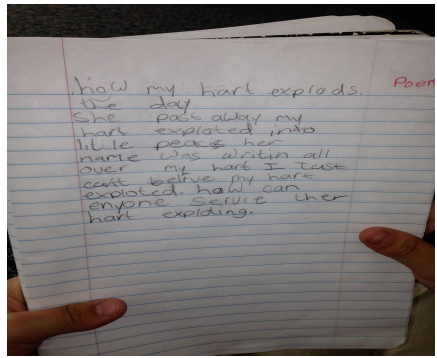 how my hart explods.
Poem
the day
She past away my
hart exploted into
litile peacis her
name was writin all
over my hart I Just
can't belive my hart
exploted. how can
enyone servie ther
hart exploding.